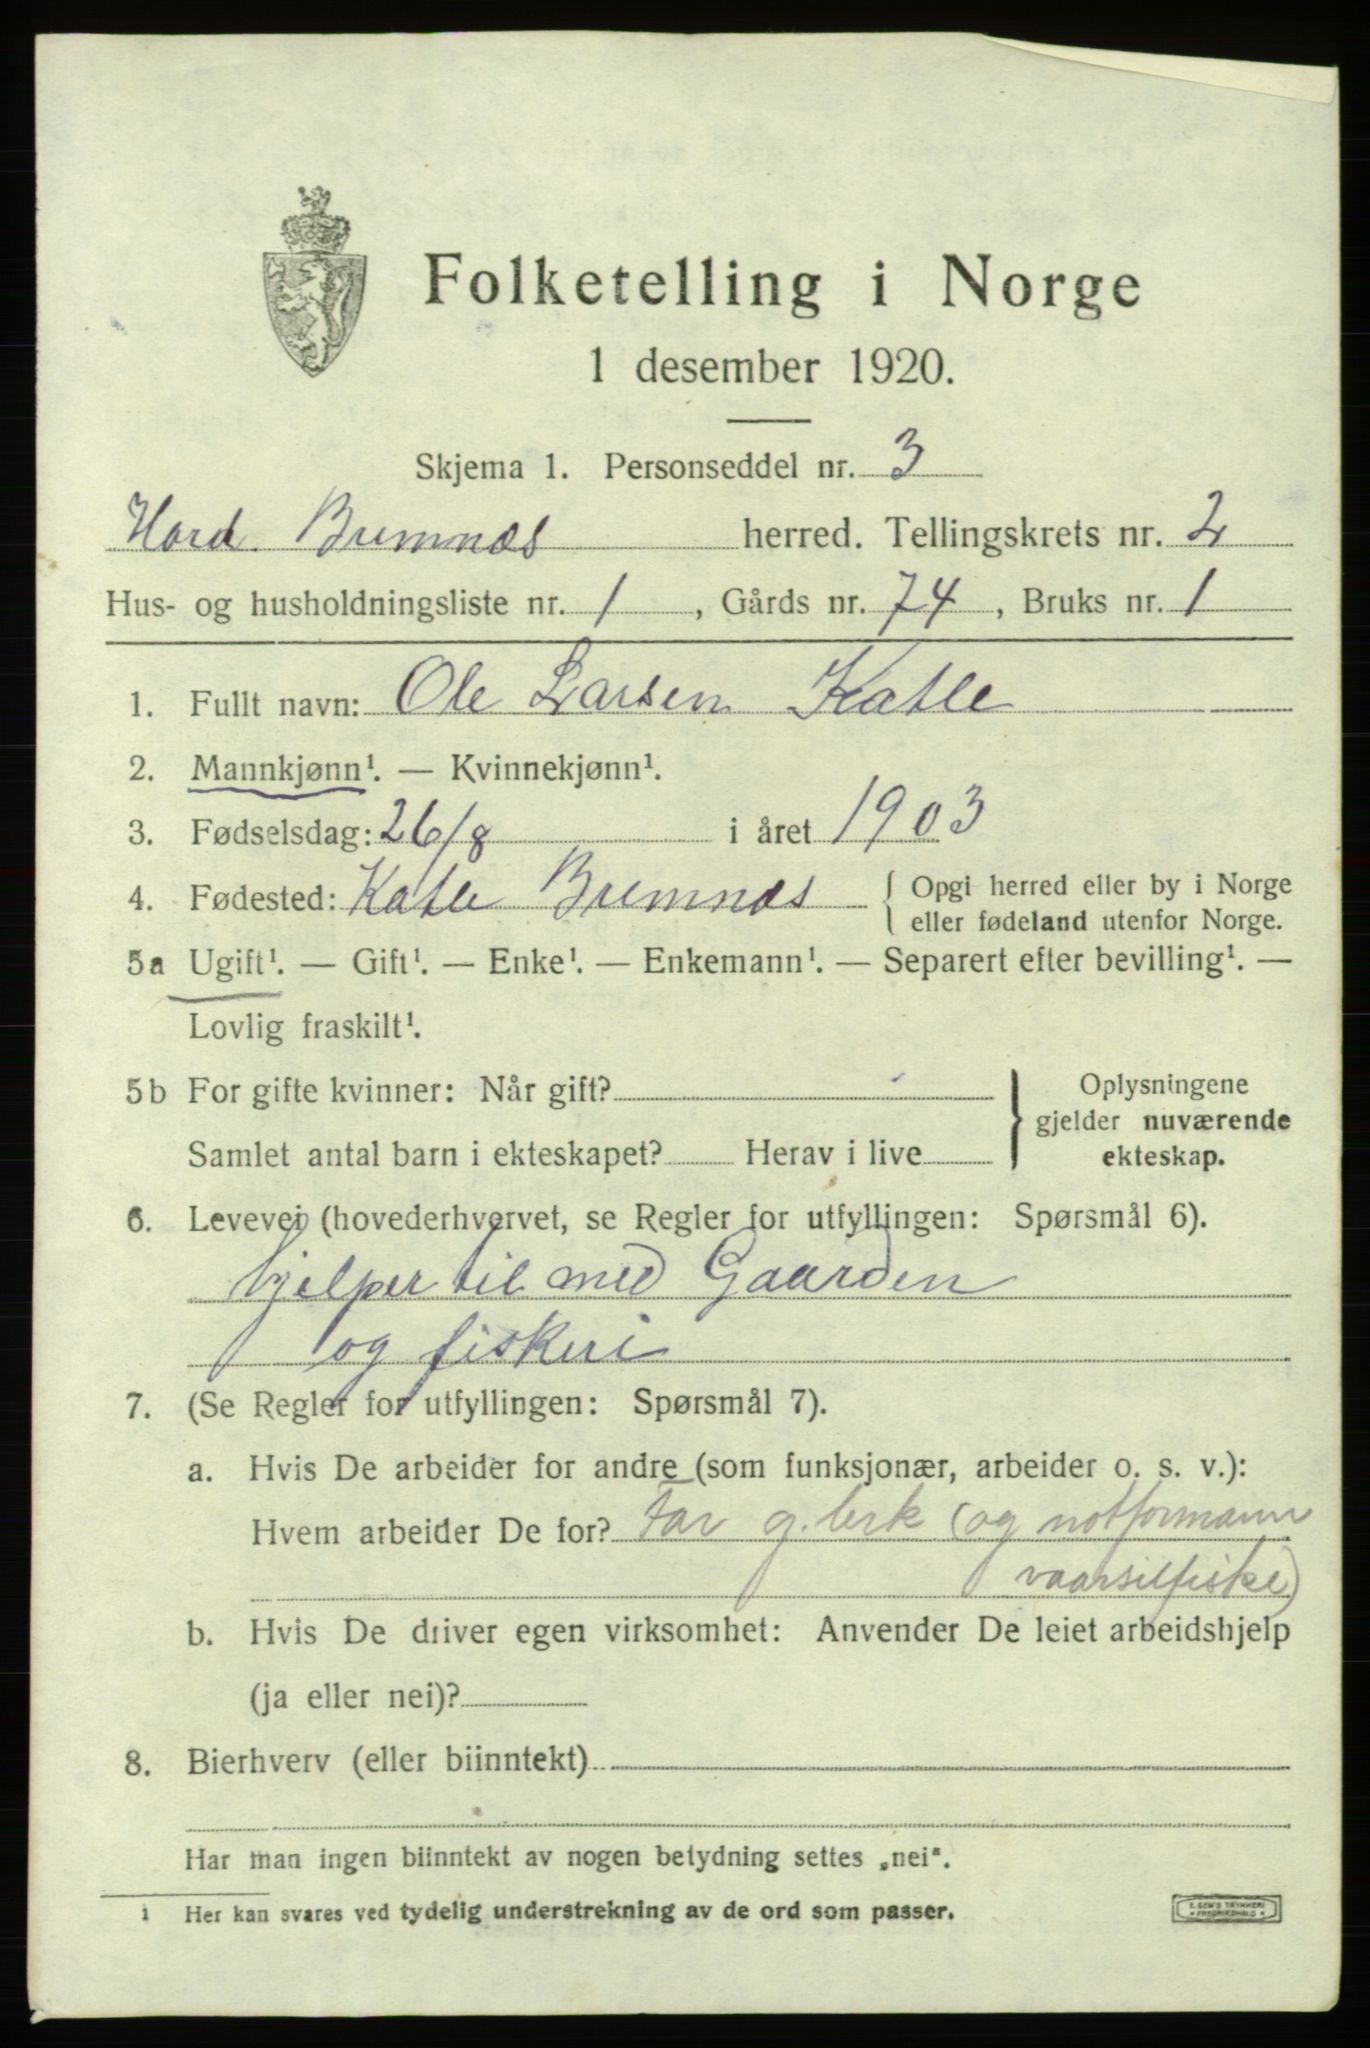 Folketelling i Norge
1 desember 1920.
Skjema 1. Personseddel nr. 3
Hord. Bremnes herred. Tellingskrets nr. 2
Hus- og husholdningsliste nr. 1, Gårds nr. 74, Bruks nr. 1
1. Fullt navn: Ole Larsen Katle
2. Mannkjønn¹. — Kvinnekjønn¹.
3. Fødselsdag: 26/8 i året 1903
4. Fødested: Katle Bremnes { Opgi herred eller by i Norge
eller fødeland utenfor Norge.
5a Ugift¹. — Gift¹. — Enke¹. — Enkemann¹. — Separert efter bevilling¹. —
Lovlig fraskilt¹.
5b For gifte kvinner: Når gift?
Samlet antal barn i ekteskapet? Herav i live
} Oplysningene
gjelder nuværende
ekteskap.
6. Levevei (hovederhvervet, se Regler for utfyllingen: Spørsmål 6).
hjelper til med Gaarden
og fiskeri
7. (Se Regler for utfyllingen: Spørsmål 7).
a. Hvis De arbeider for andre (som funksjonær, arbeider o. s. v.):
Hvem arbeider De for? Far g.brk (og notformann
vaarsilfiske)
b. Hvis De driver egen virksomhet: Anvender De leiet arbeidshjelp
(ja eller nei)?
8. Bierhverv (eller biinntekt)
Har man ingen biinntekt av nogen betydning settes „nei".
1 Her kan svares ved tydelig understrekning av de ord som passer.
E. SEM'S TRYKKERI
* FREDRIKSHALD *